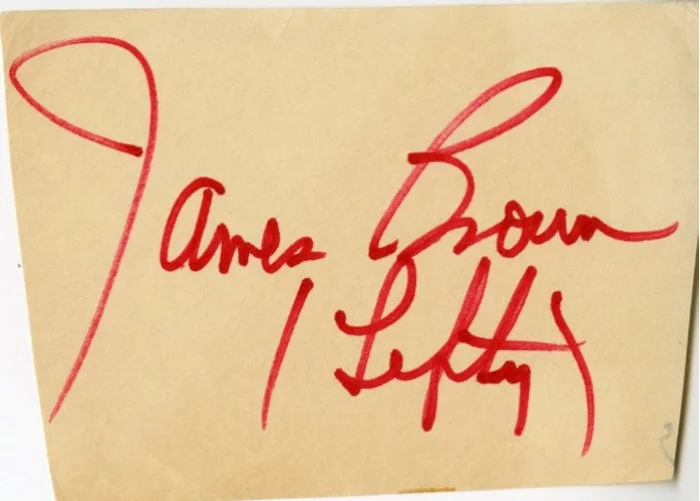 James Brown
(Lefty)